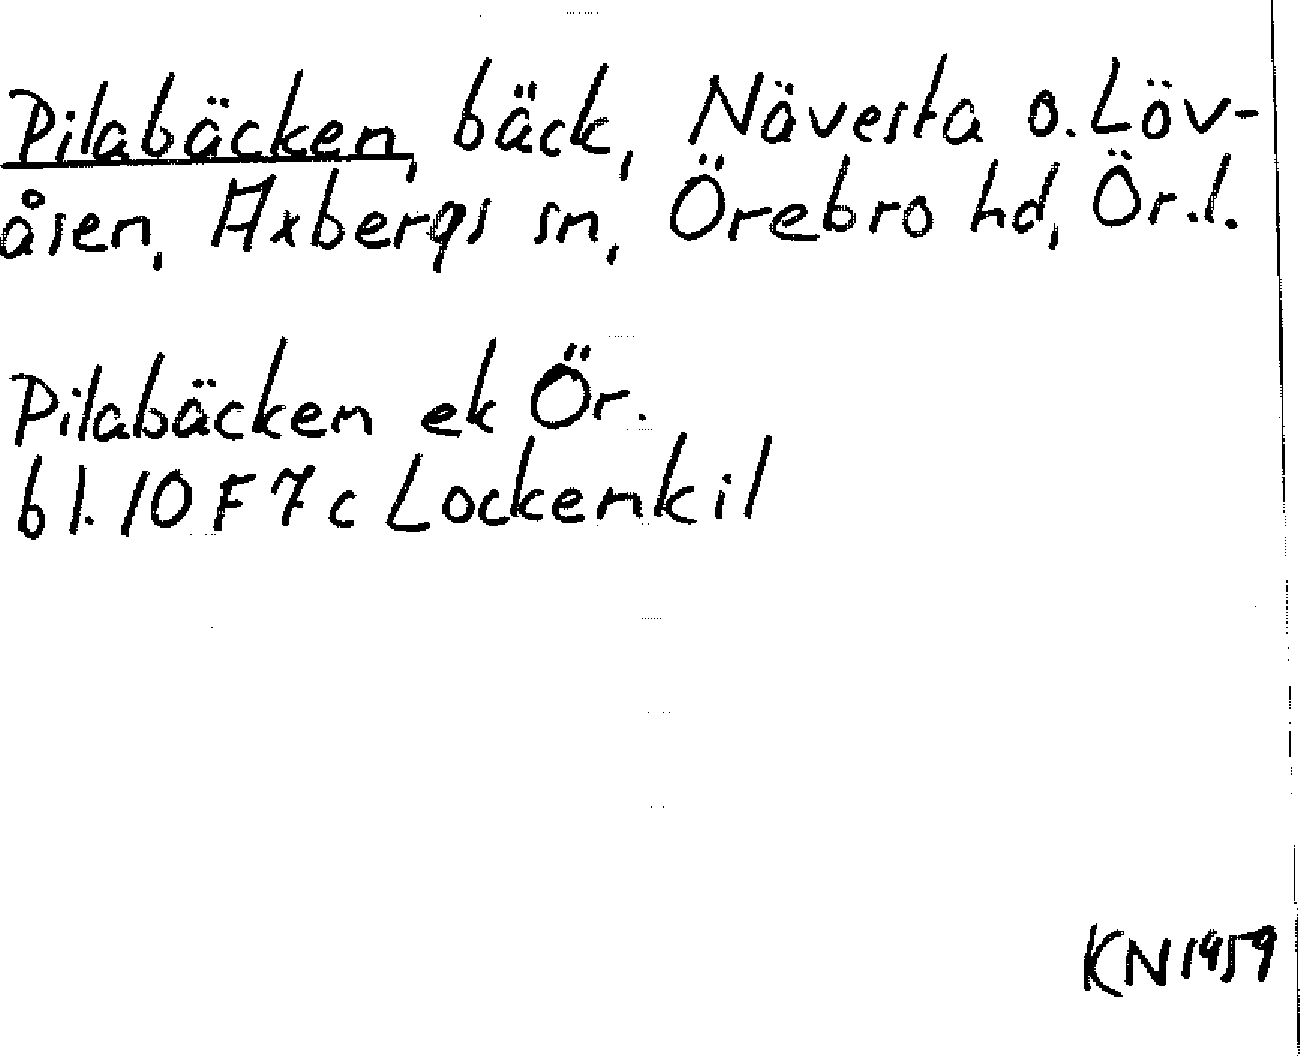 Pilabäcken, bäck, Nävesta o. Löv-
åsen, Axbergs sn, Örebro hd, Ör.l.
Pilabäcken ek Ör.
bl. 10 F 7 c Lockenkil
KN 1959